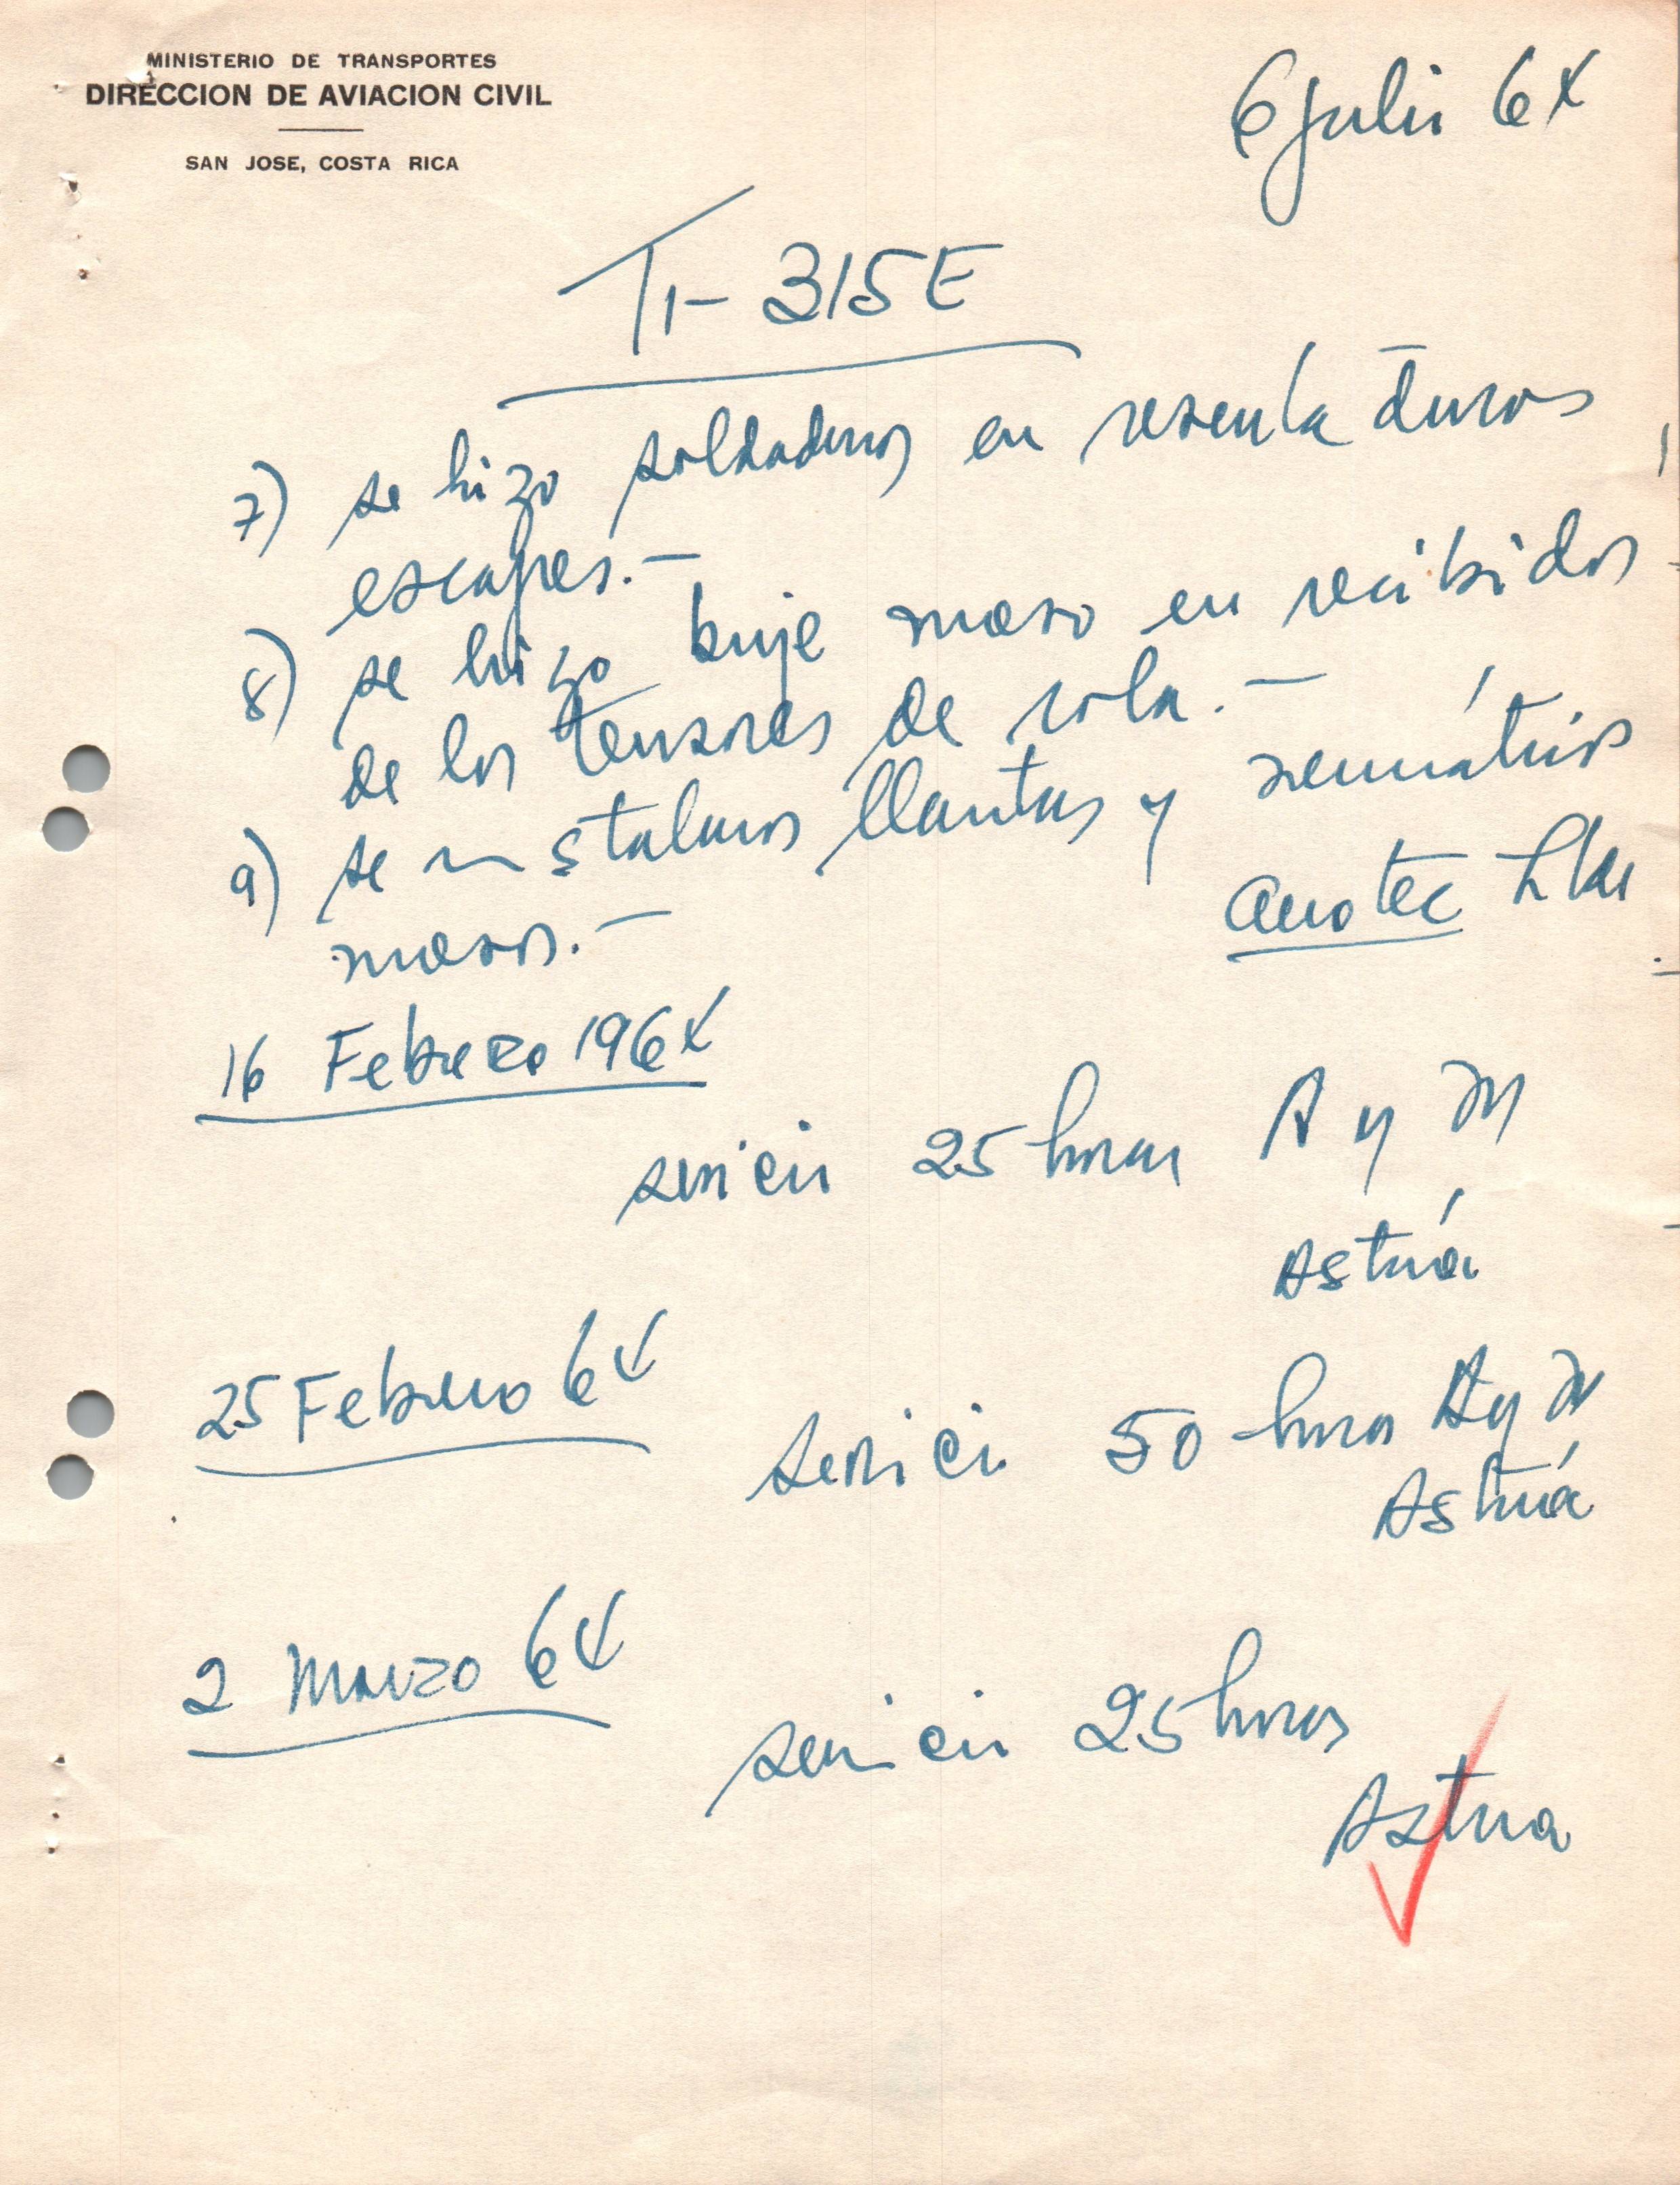 MINISTERIO DE TRANSPORTES
DIRECCION DE AVIACION CIVIL
SAN JOSE, COSTA RICA
6 julio 64
TI-315E
7) se hizo soldaduras en
escapes.-
8) se hizo buje nuevo en recibidos
de los tensores de cola.-
9) se instalaron llantas y neumáticos
nuevos.-
Aerotec Ltda
16 Febrero 1964
servicio 25 horas A y M
Astúa
25 Febrero 64
servicio 50 horas A y M
Astúa
2 Marzo 64
servicio 25 horas
Astua